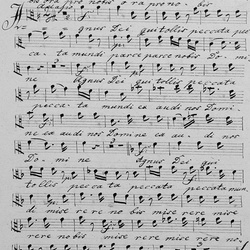 bis ora pro nobis o ra pro no bis
Agnus Dei qui tollis peccata
ca ta mundi parce parce nobis Domi
ne Agnus Dei qui tollis peccata
peccata mundi ex audi nos Domi
ne ex audi nos Domine ex au di nos
Do mi ne Agnus Dei qui
tollis peccata peccata peccata mun
di mise rere no bis mise rere mise
rere nobis mise rere mise rere